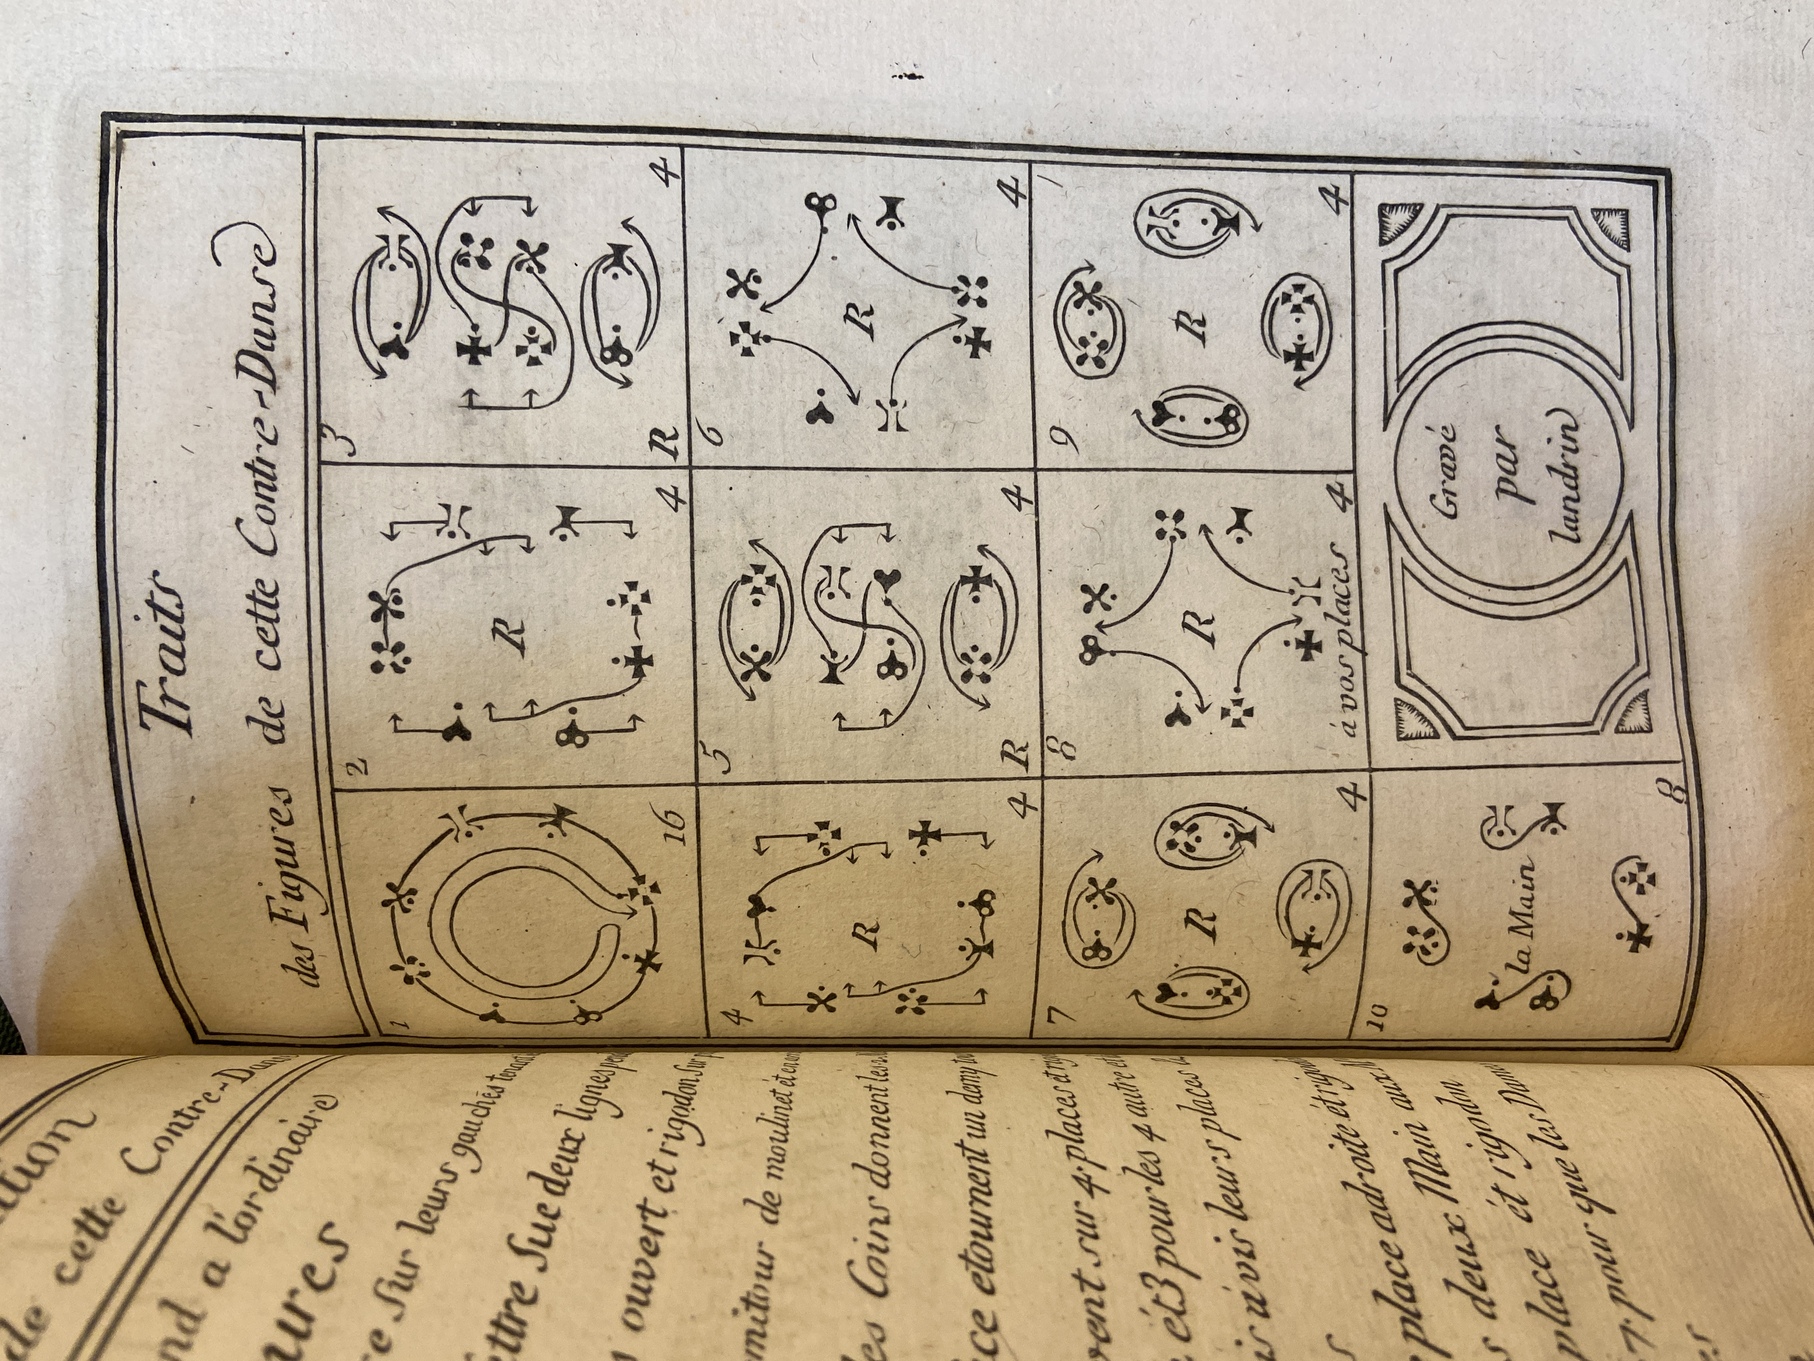 Traits
des Figures de cette Contre-Danse
1
16
2
R
4
3
R
4
4
R
4
5
R
4
6
R
4
7
R
4
8
R
á vos places
4
9
R
4
10
la Main
8
Gravé
par
landrin
de cette Contre-Dans
nd a l'ordinaire
ures
e sur leurs gauches
ettre sue deux lignes
ouvert et rigodon sur
mitour de moulinet et
es Coins donnent les
ce etournent un demy
vent sur 4 places et
ét 3 pour les 4 autre
is avis leurs places
place adroite ét
place aux
deux Main
place ét rigodon
7 pour que les Dam